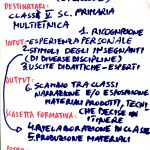 DESTINATARI:
CLASSE V SC. PRIMARIA
MULTIETNICA
1. RICOGNIZIONE
INPUT: -ESPERIENZA PERSONALE
2. STIMOLI DEGLI INSEGNANTI
(DI DIVERSE DISCIPLINE)
3. USCITE DIDATTICHE - ESPERTI
OUTPUT:
6. SCAMBIO TRA CLASSI
NARRAZIONE E/O ESPOSIZIONE
MATERIALI PRODOTTI,
CHE DECIDE IN
ITINERE
SCALETTA FORMATIVA:
4. RIELABORAZIONE IN CLASSE
5. PRODUZIONE MATERIALI